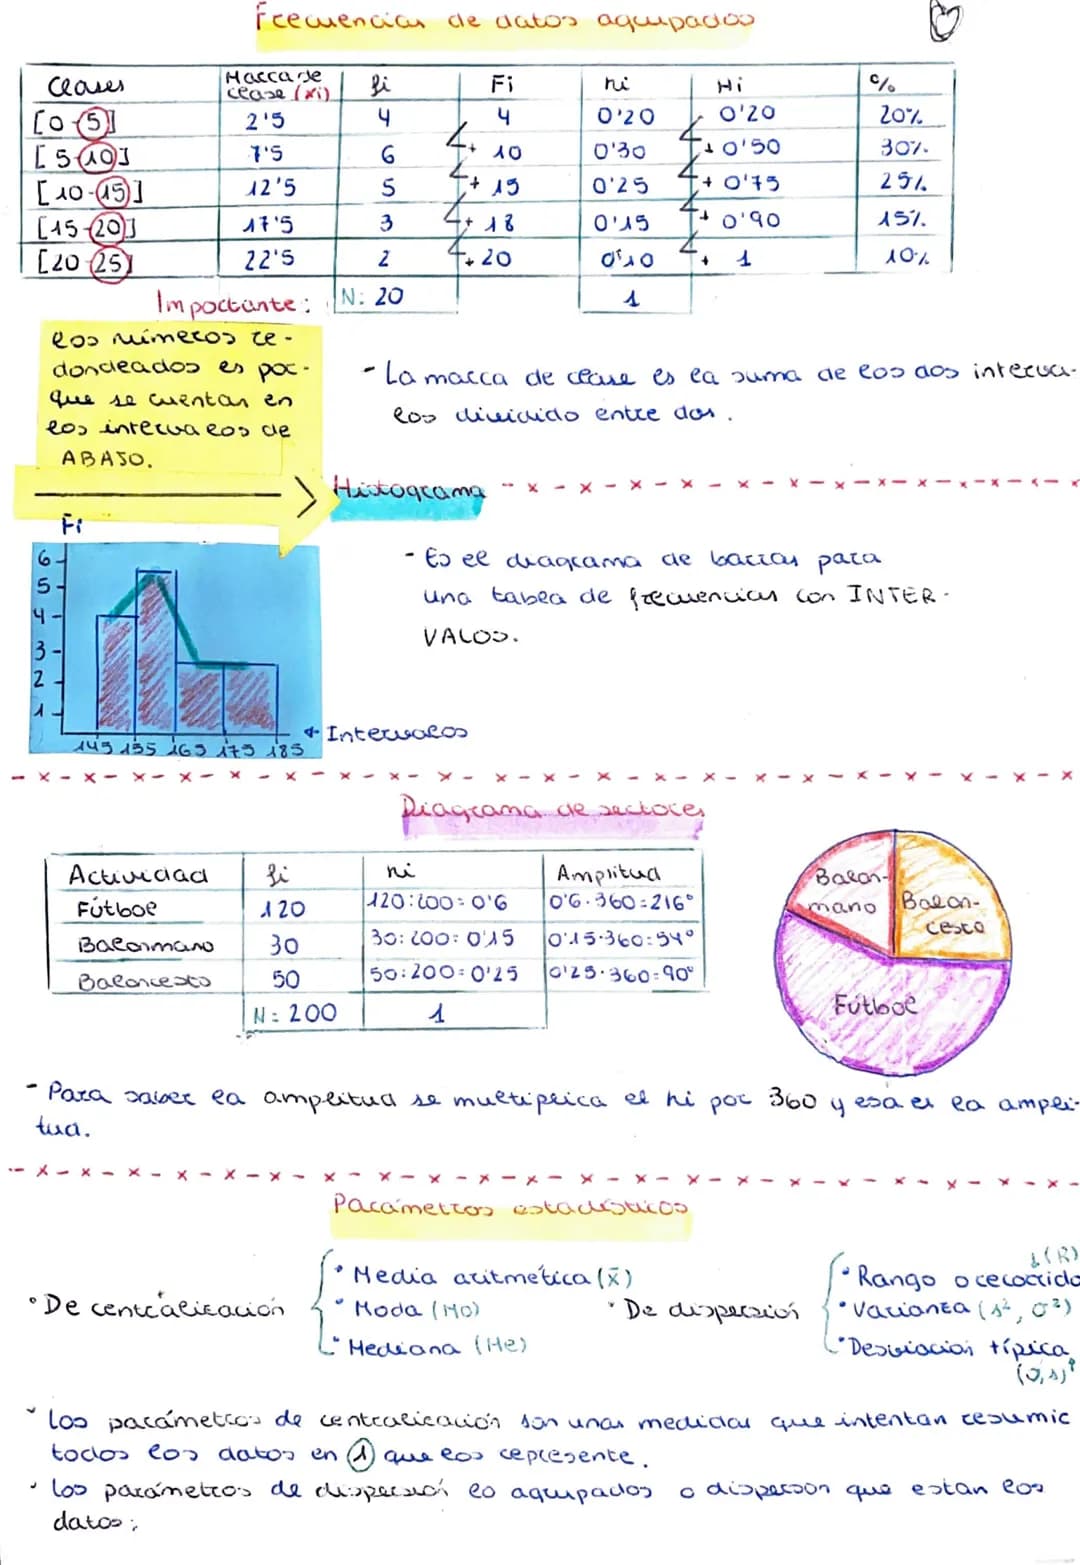 Frecuencias de datos agrupados
Clases Marca de clase (xi) fi Fi hi Hi %
[0-5] 2'5 4 4 0'20 0'20 20%
[5-10] 7'5 6 + 10 0'30 + 0'50 30%
[10-15] 12'5 5 + 15 0'25 + 0'75 25%
[15-20] 17'5 3 + 18 0'15 + 0'90 15%
[20-25] 22'5 2 + 20 0'10 + 1 10%
Importante: N: 20 1
los números re-
dondeados es por-
que se cuentan en
los intervalos de
ABAJO.
- La marca de clase es la suma de los dos interva-
los dividido entre dos.
Histograma
Fi
- Es el diagrama de barras para
una tabla de frecuencias con INTER-
VALOS.
6
5
4
3
2
1
145 155 165 175 185
Intervalos
Diagrama de sectores
Actividad fi hi Amplitud
Fútbol 120 120:200=0'6 0'6·360=216°
Balonmano 30 30:200=0'15 0'15·360=54°
Baloncesto 50 50:200=0'25 0'25·360=90°
N=200 1
Balon-
mano
Balon-
cesto
Fútbol
- Para saber la amplitud se multiplica el hi por 360 y esa es la ampli-
tud.
Parámetros estadísticos
• De centralización
• Media aritmética (x̄)
• Moda (Mo)
• Mediana (Me)
• De dispersión
(R)
• Rango o recorrido
• Varianza (s², σ²)
• Desviación típica
(σ, s)
• Los parámetros de centralización son unas medidas que intentan resumir
todos los datos en 1 que los represente.
• Los parámetros de dispersión lo agrupados o disperson que estan los
datos;